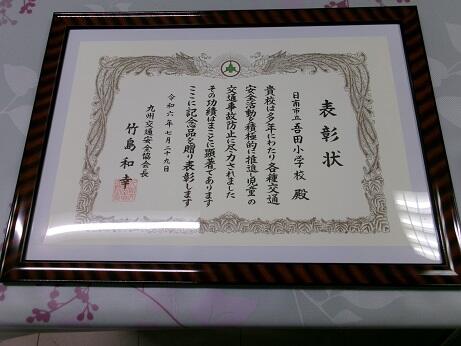 表彰状
日南市立吾田小学校 殿
貴校は多年にわたり各種交通
安全活動を積極的に推進し児童の
交通事故防止に尽力されました
その功績はまことに顕著であります
ここに記念品を贈り表彰します
令和六年七月二九日
九州交通安全協会長
竹島和幸